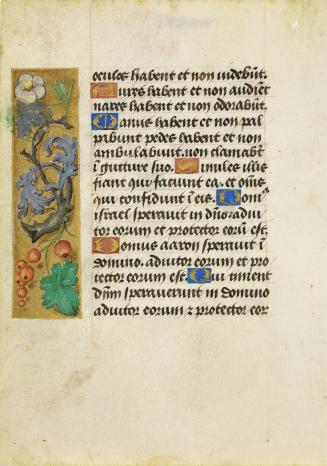 oculos habent et non videbũt.
Aures habent et non audiẽt
nares habent et non odorabũt.
Manus habent et non pal
pabunt pedes habent et non
ambulabũt. non clamabt̃
ĩ gutture suo. Similes illis
fiant qui faciunt ea. et om̃s
qui confidunt ĩ eis. Domꝰ
israel speravit in dño. adiu
tor eorum et protector eorũ est.
Domus aaron speravit ĩ
domino. adiutor eorum et pro
tector eorum est. Qui timent
dñm speraverunt in domino
adiutor eorum ⁊ protector eor